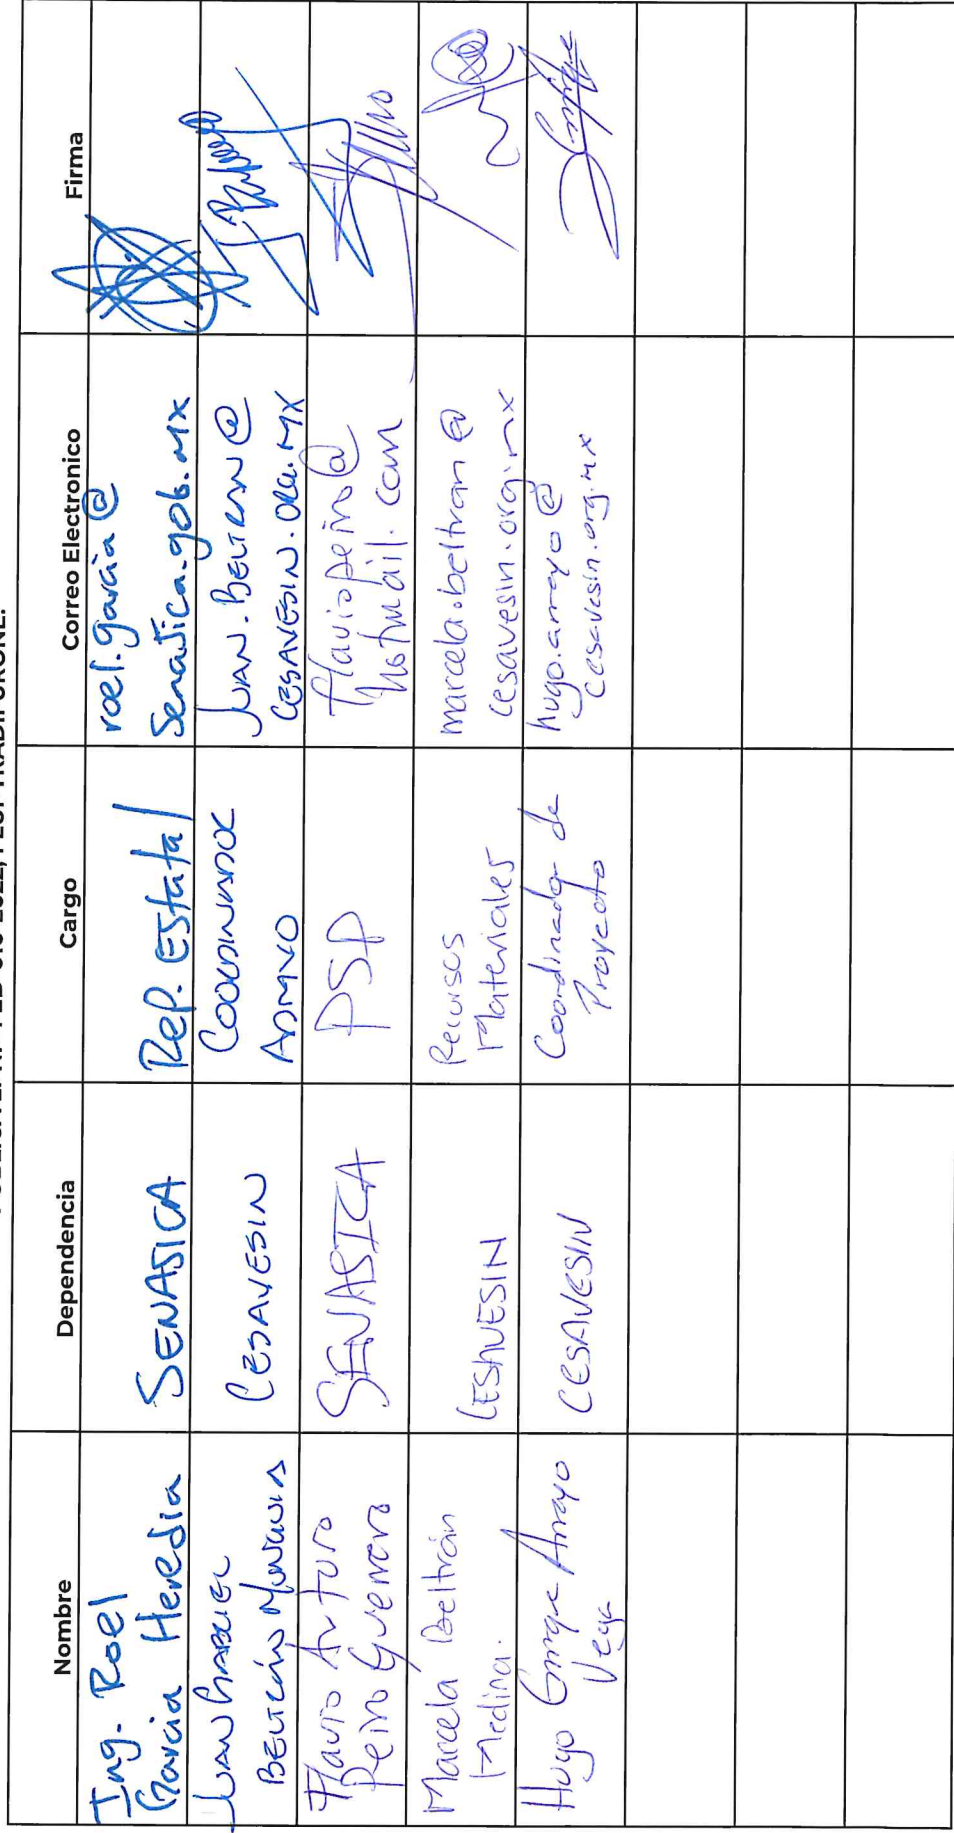 Nombre
Dependencia
Cargo
Correo Electronico
Firma
Ing. Roel
Garcia Heredia
SENASICA
Rep. Estatal
roel.garcia@
Senasica.gob.mx
JUAN GABRIEL
BELTRÁN
CESAVESIN
COORDINADOR
ADMVO
JUAN.BELTRAN@
CESAVESIN.ORG.MX
Flavio Arturo
Peiro Guerrero
SENASICA
PSP
flaviopeiro@
hotmail.com
Marcela Beltrán
Medina.
CESAVESIN
Recursos
Materiales
marcela.beltran@
cesavesin.org.mx
Hugo Enrique Arroyo
Vega
CESAVESIN
Coordinador de
Proyecto
hugo.arroyo@
cesavesin.org.mx